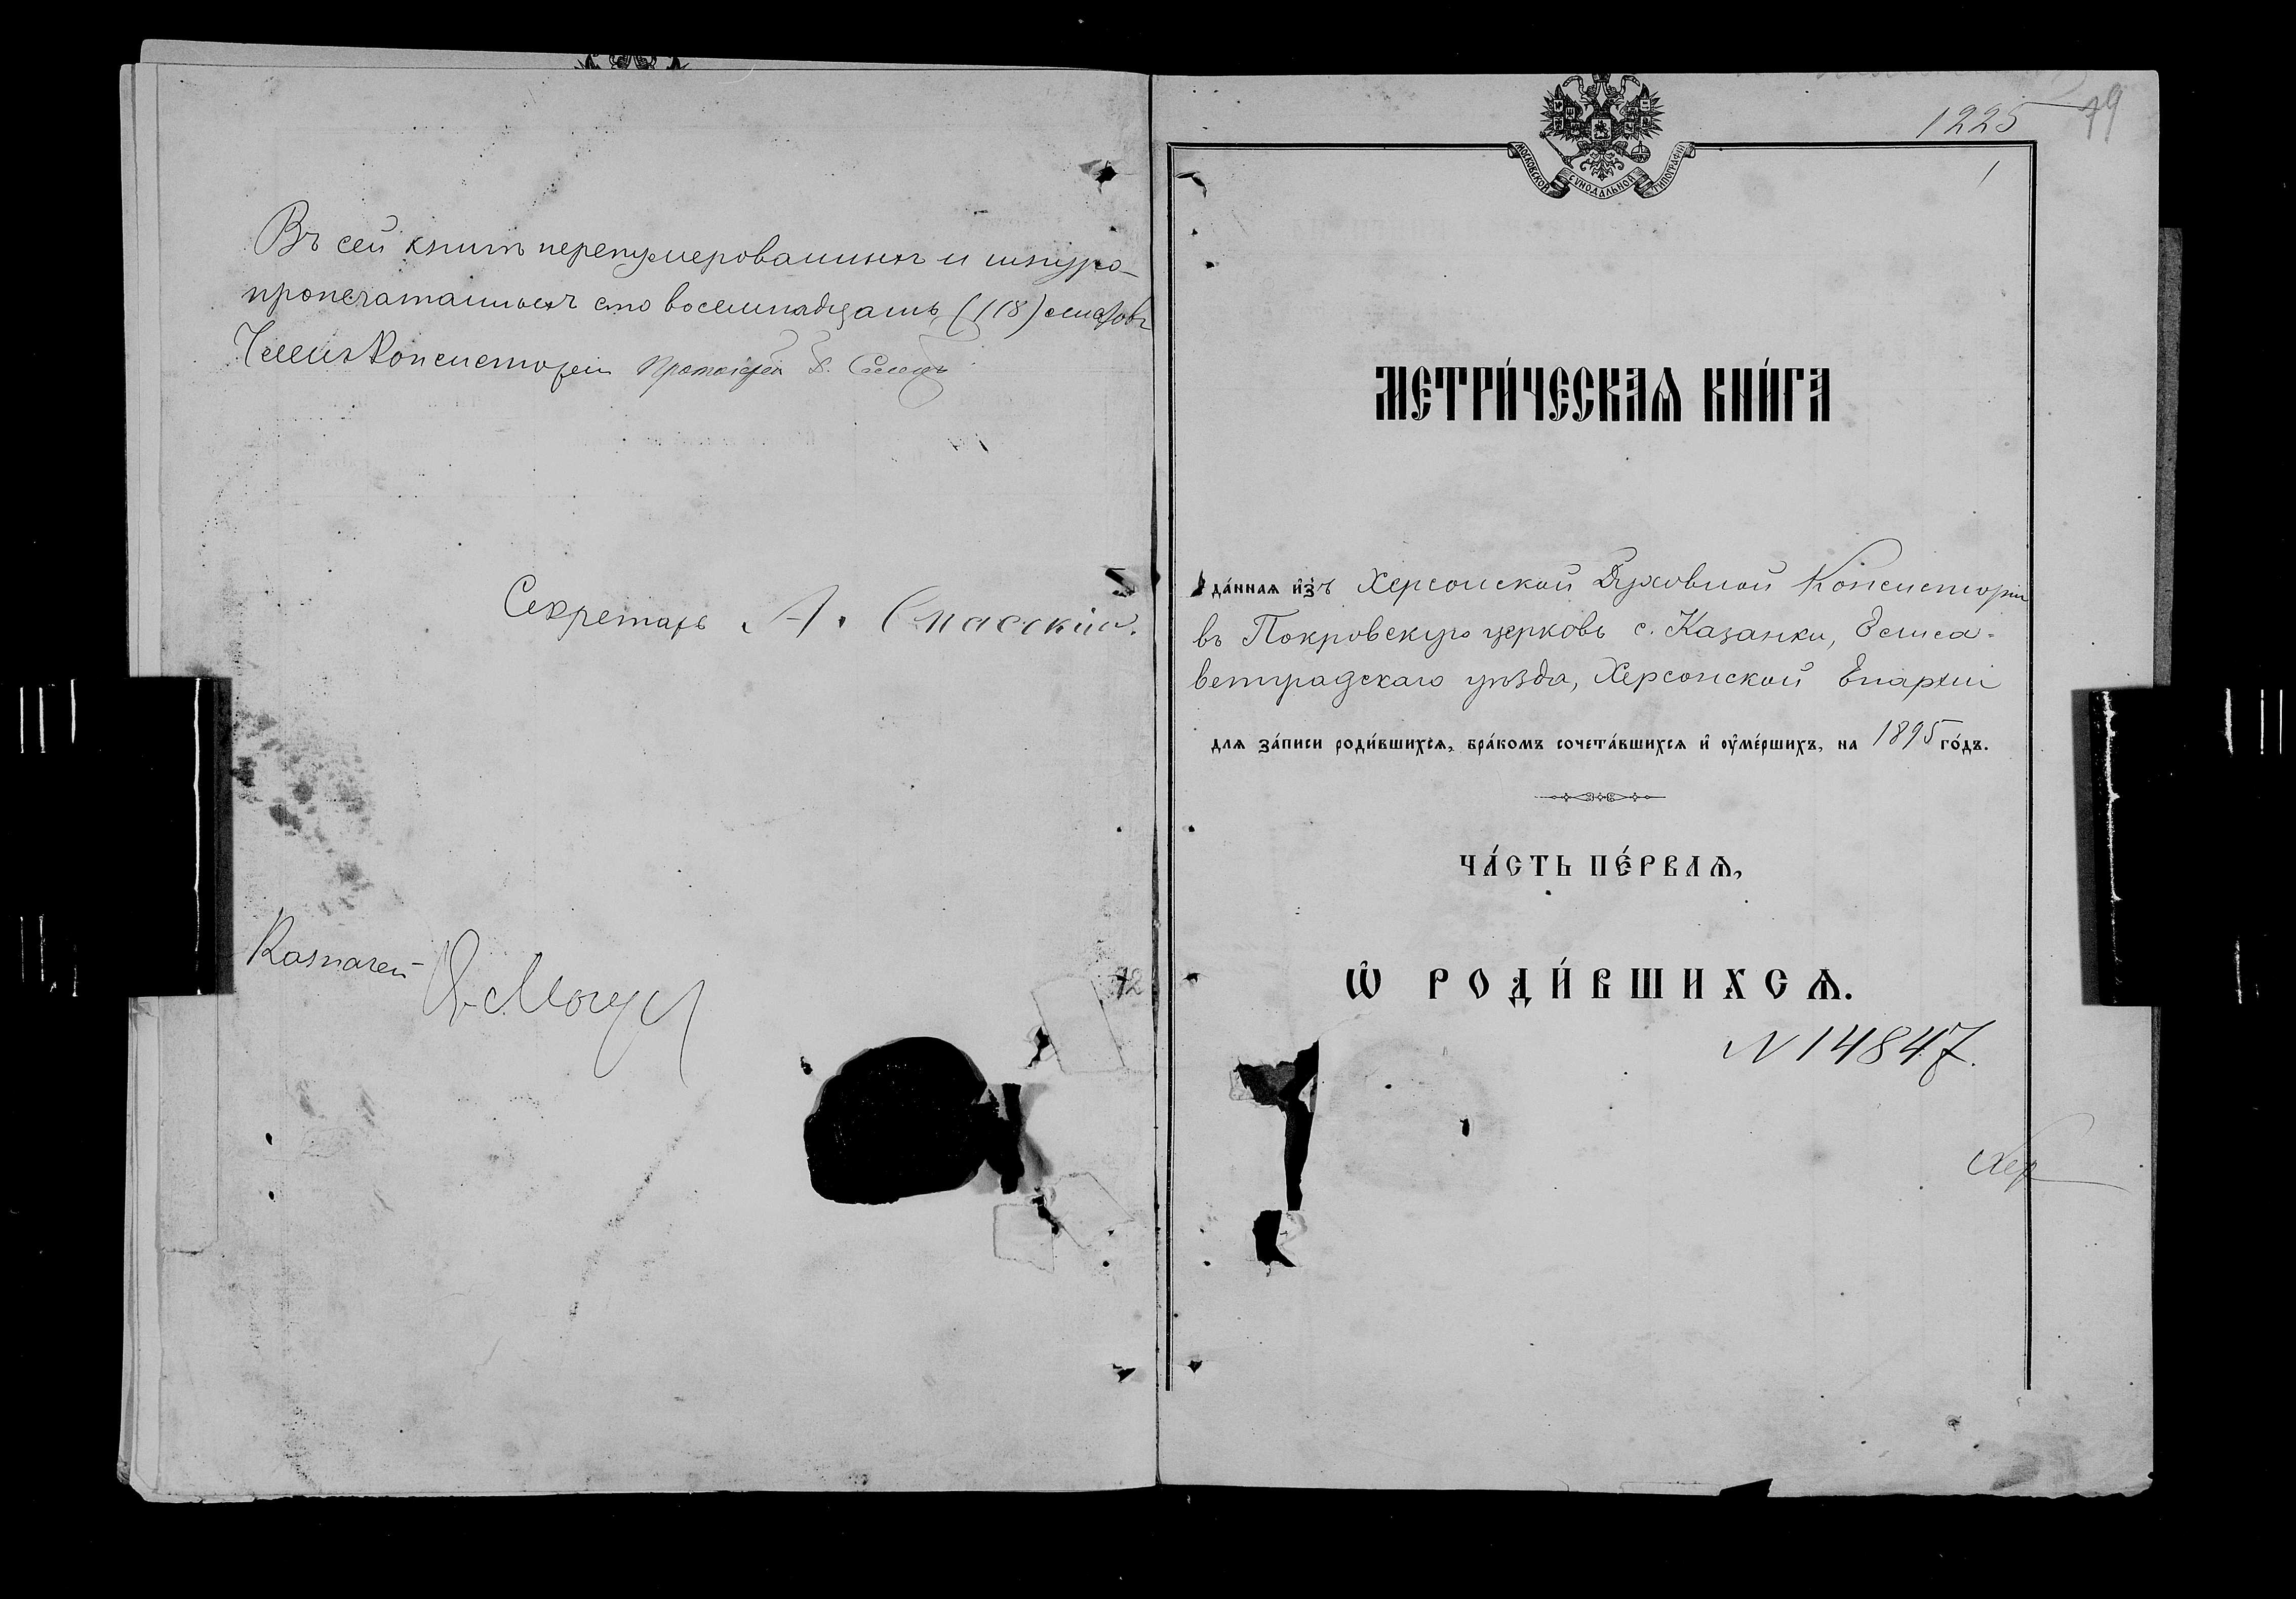 Въ сей книгѣ перенумерованныхъ и шнуро-
пропечатанныхъ сто восемнадцать (118) листовъ
Членъ Консисторіи Протоіерей
Секретарь А. Спасскій.
Казначей
72
1225 79
1
МОСКОВСКОЙ СѴНОДАЛЬНОЙ ТИПОГРАФІИ
МЕТРИ́ЧЕСКАѦ КНИ́ГА
да́ннаѧ и҆зъ Херсонской Духовной Консисторіи
въ Покровскую церковь с. Казанки, Елиса-
ветградскаго уѣзда, Херсонской Епархіи
для за́писи роди́вшихсѧ, бра́комъ сочета́вшихсѧ и҆ ᲂу҆ме́ршихъ, на 1895 го́дъ.
ЧА́СТЬ ПЕ́РВАѦ,
Ѽ РОДИ́ВШИХСѦ.
N 14847.
Хер